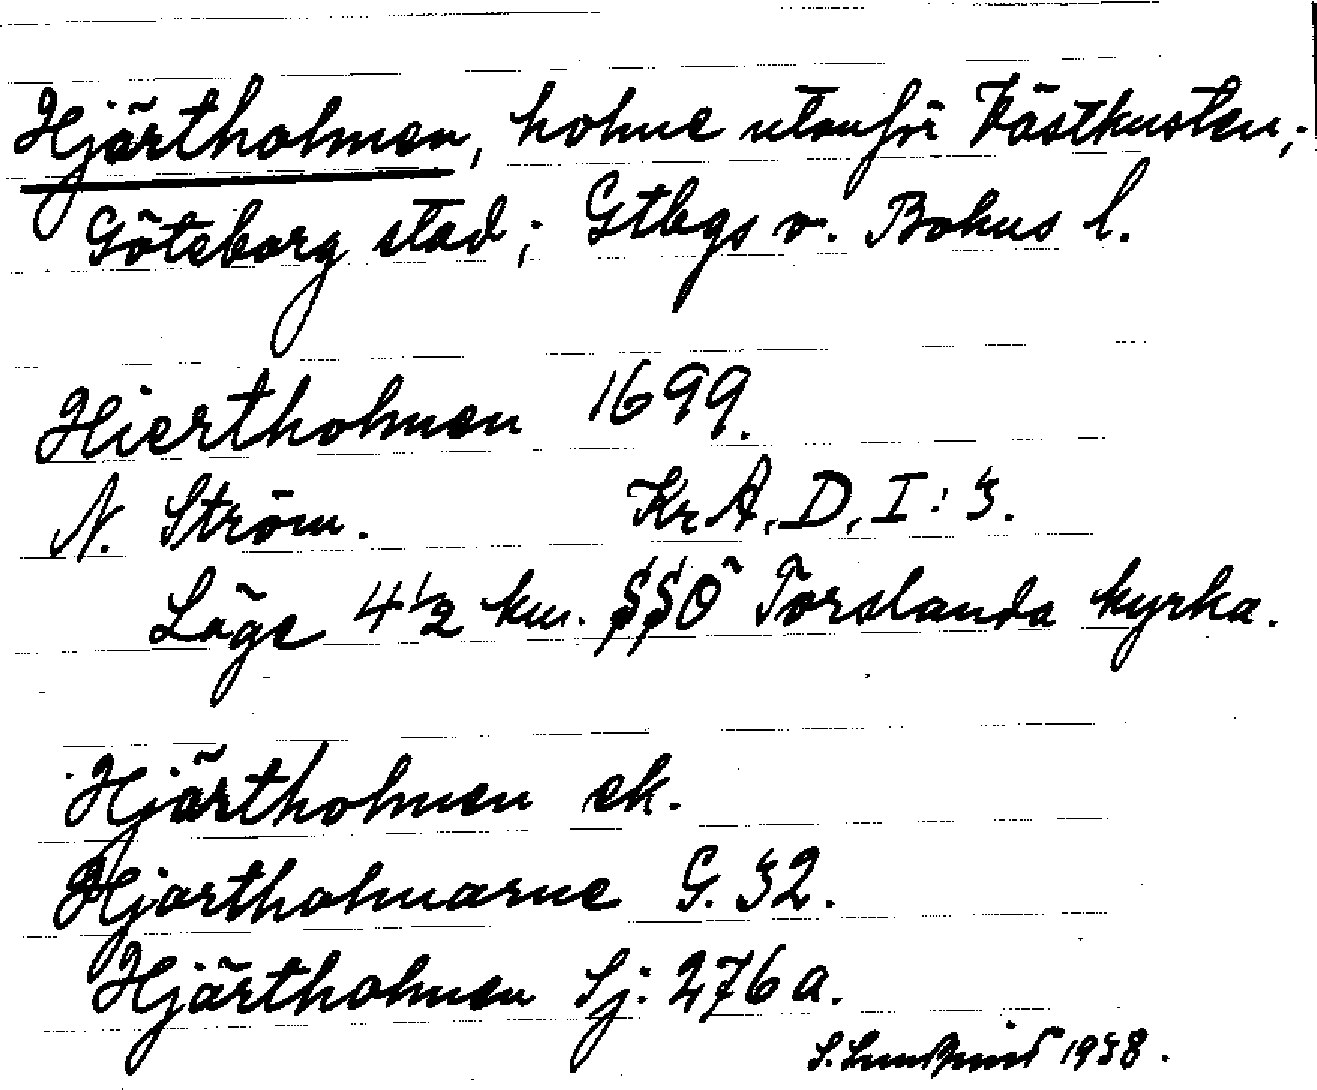 Hjärtholmen, holme utanför Västkusten;
Göteborg stad; Gtbgs o. Bohus l.
Hiertholmen 1699.
N. Ström. KrA, D, I: 3.
Läge 4 1/2 km. SSO Torslanda kyrka.
Hjärtholmen ek.
Hjortholmarne G. 32.
Hjärtholmen Sj: 276 a.
S. 1938.